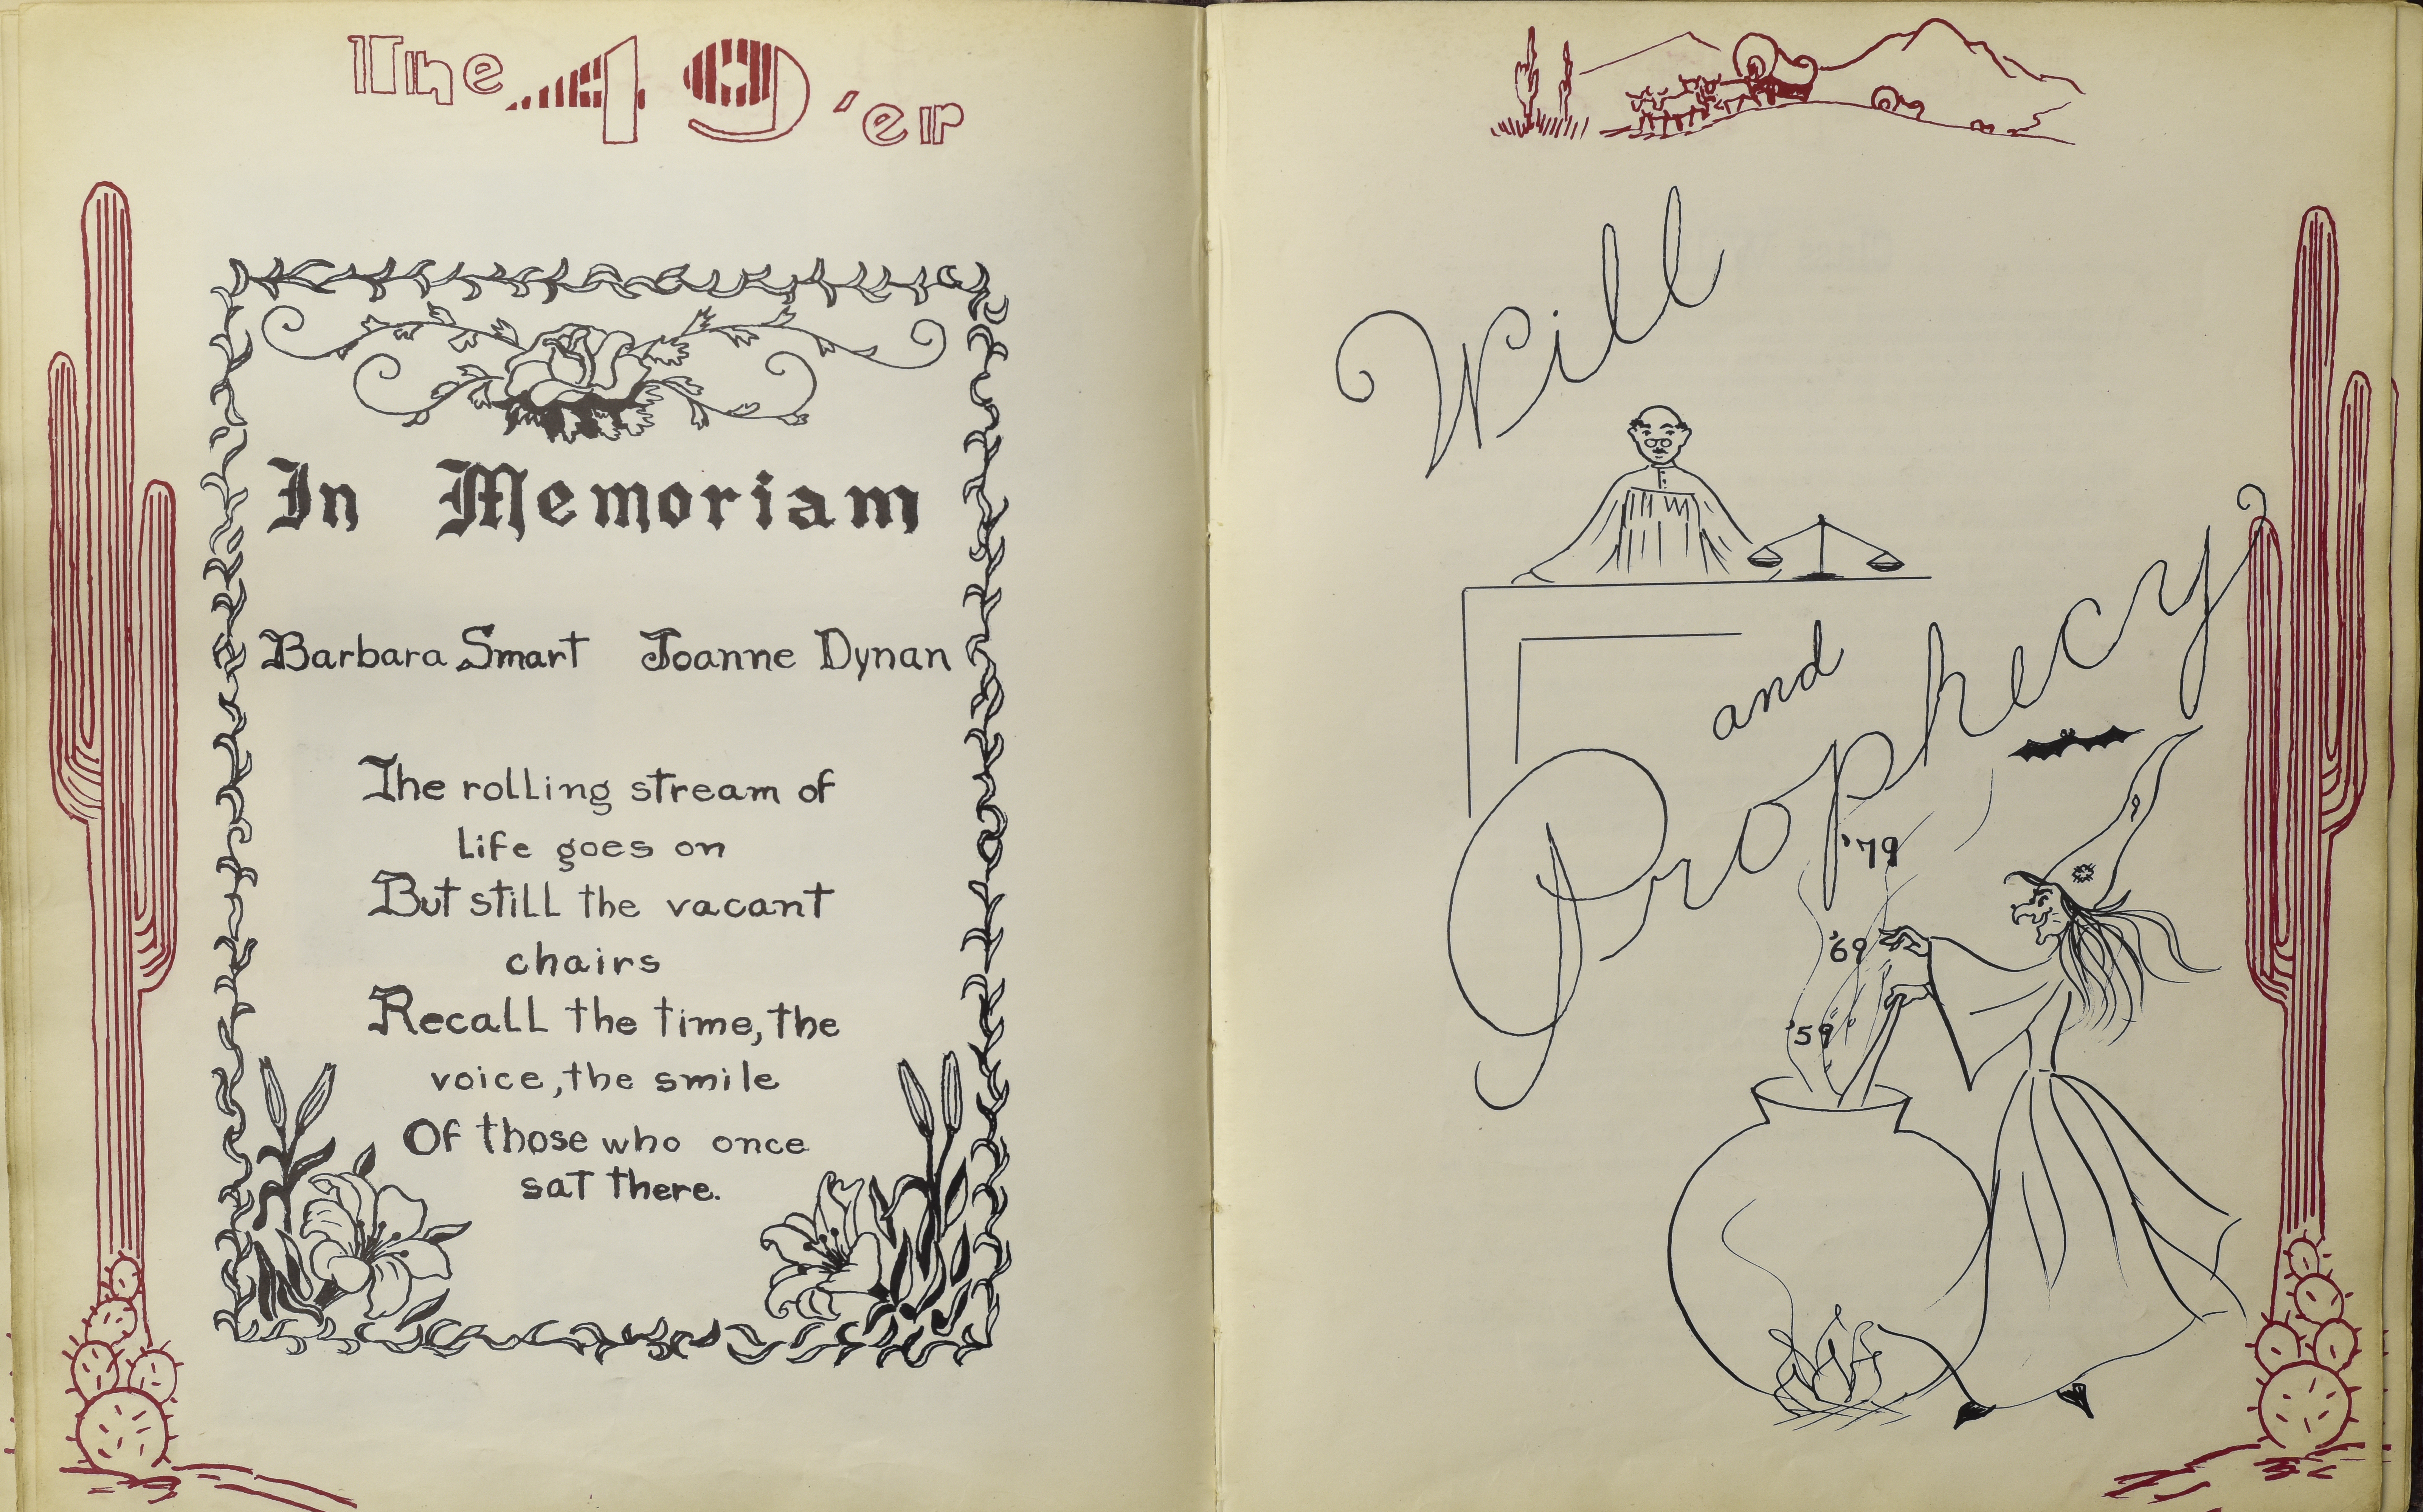 The 49'er
In Memoriam
Barbara Smart Joanne Dynan
The rolling stream of
life goes on
But still the vacant
chairs
Recall the time, the
voice, the smile
Of those who once
sat there.
Will
and
Prophecy
'79
'69
'59